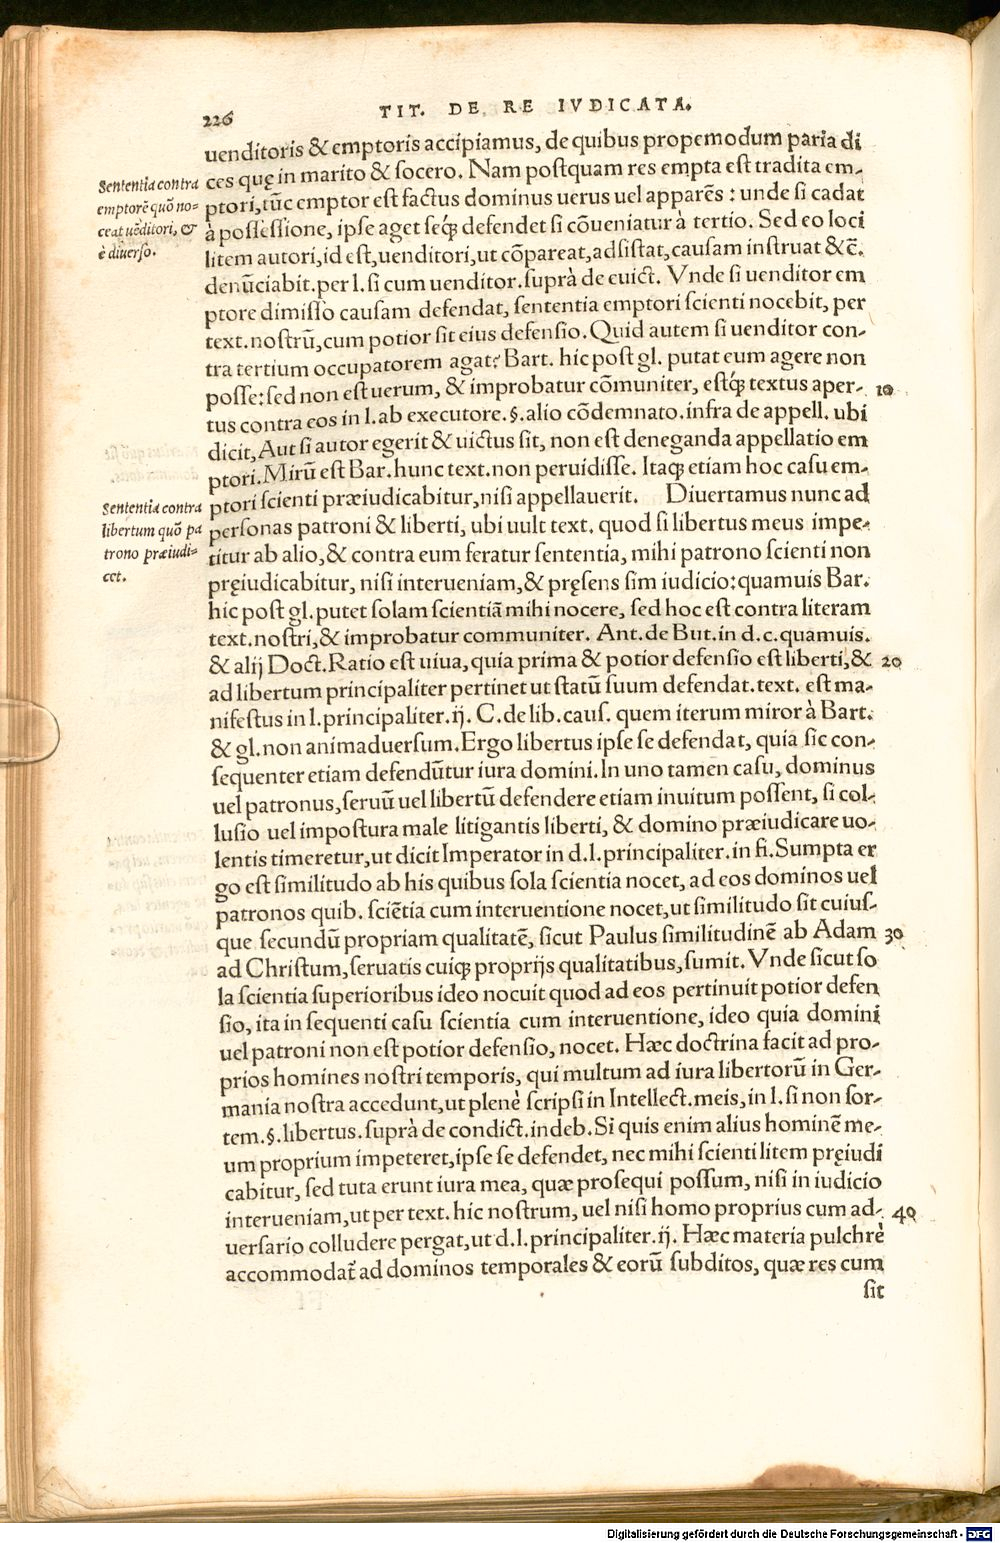 226
TIT. DE RE IVDICATA.
uenditoris & emptoris accipiamus, de quibus propemodum paria di
ces quę in marito & socero. Nam postquam res empta est tradita em-
ptori, tũc emptor est factus dominus uerus uel apparẽs: unde si cadat
à possessione, ipse aget seq́ꝫ defendet si cõueniatur à tertio. Sed eo loci
litem autori, id est, uenditori, ut cõpareat, adsistat, causam instruat &c̃.
denũciabit. per l. si cum uenditor. suprà de euict. Vnde si uenditor em
ptore dimisso causam defendat, sententia emptori scienti nocebit, per
text. nostrũ, cum potior sit eius defensio. Quid autem si uenditor con-
tra tertium occupatorem agat? Bart. hic post gl. putat eum agere non
posse: sed non est uerum, & improbatur cõmuniter, estq́ꝫ textus aper-
10
tus contra eos in l. ab executore. §. alio cõdemnato. infra de appell. ubi
dicit, Aut si autor egerit & uictus sit, non est deneganda appellatio em
ptori. Mirũ est Bar. hunc text. non peruidisse. Itaqꝫ etiam hoc casu em-
ptori scienti præiudicabitur, nisi appellauerit. Diuertamus nunc ad
personas patroni & liberti, ubi uult text. quod si libertus meus impe-
titur ab alio, & contra eum feratur sententia, mihi patrono scienti non
pręiudicabitur, nisi interueniam, & pręsens sim iudicio: quamuis Bar.
hic post gl. putet solam scientiã mihi nocere, sed hoc est contra literam
text. nostri, & improbatur communiter. Ant. de But. in d. c. quamuis.
& alij Doct. Ratio est uiua, quia prima & potior defensio est liberti, &
20
ad libertum principaliter pertinet ut statũ suum defendat. text. est ma-
nifestus in l. principaliter. ij. C. de lib. caus. quem iterum miror à Bart.
& gl. non animaduersum. Ergo libertus ipse se defendat, quia sic con-
sequenter etiam defendũtur iura domini. In uno tamen casu, dominus
uel patronus, seruũ uel libertũ defendere etiam inuitum possent, si col-
lusio uel impostura male litigantis liberti, & domino præiudicare uo-
lentis timeretur, ut dicit Imperator in d. l. principaliter. in fi. Sumpta er
go est similitudo ab his quibus sola scientia nocet, ad eos dominos uel
patronos quib. sciẽtia cum interuentione nocet, ut similitudo sit cuius-
que secundũ propriam qualitatẽ, sicut Paulus similitudinẽ ab Adam
30
ad Christum, seruatis cuiqꝫ proprijs qualitatibus, sumit. Vnde sicut so
la scientia superioribus ideo nocuit quod ad eos pertinuit potior defen
sio, ita in sequenti casu scientia cum interuentione, ideo quia domini
uel patroni non est potior defensio, nocet. Hæc doctrina facit ad pro-
prios homines nostri temporis, qui multum ad iura libertorũ in Ger-
mania nostra accedunt, ut plenè scripsi in Intellect. meis, in l. si non sor-
tem. §. libertus. suprà de condict. indeb. Si quis enim alius hominẽ me-
um proprium impeteret, ipse se defendet, nec mihi scienti litem pręiudi
cabitur, sed tuta erunt iura mea, quæ prosequi possum, nisi in iudicio
interueniam, ut per text. hic nostrum, uel nisi homo proprius cum ad-
40
uersario colludere pergat, ut d. l. principaliter. ij. Hæc materia pulchrè
accommodat̃ ad dominos temporales & eorũ subditos, quæ res cum
sit
Sententia contra
emptorẽ quõ no-
ceat uẽditori, &
è diuerso.
Sententia contra
libertum quõ pa
trono præiudi-
cet.
Digitalisierung gefördert durch die Deutsche Forschungsgemeinschaft - DFG